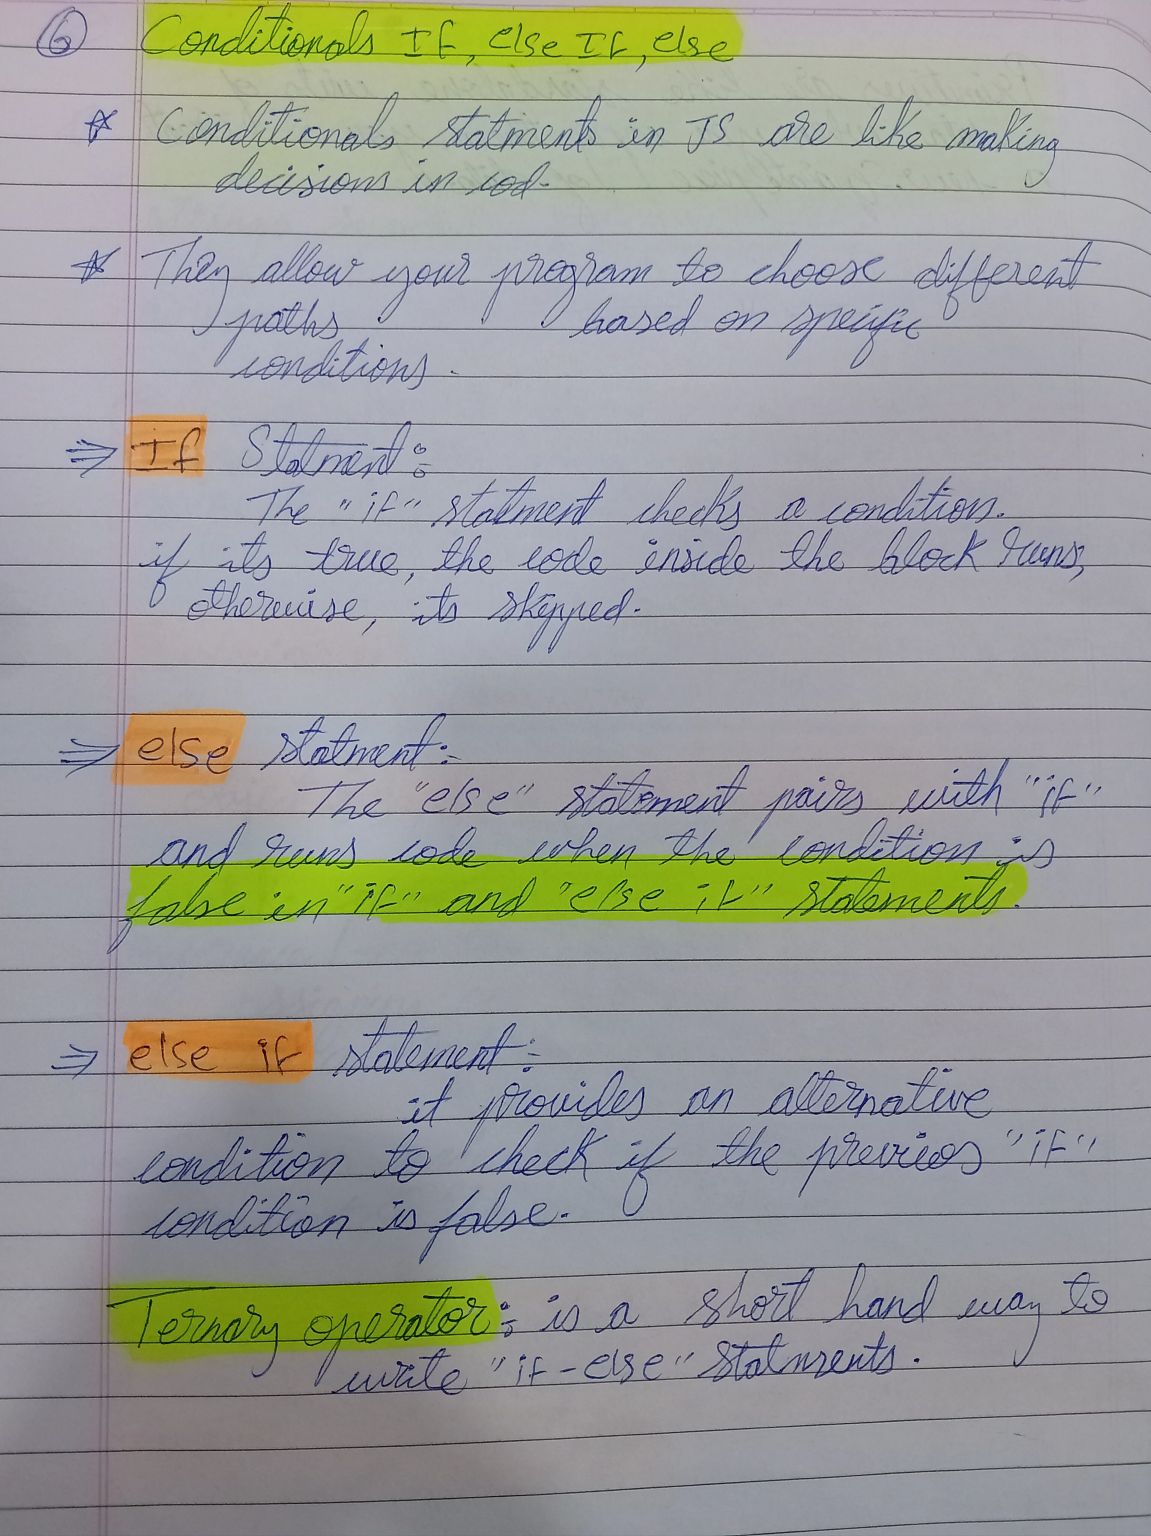 6 Conditionals If, else If, else
☆ Conditionals statments in JS are like making
decisions in cod.
☆ They allow your program to choose different
paths based on specific
conditions.
⇒ If Statment:
The "if" statment checks a condition.
if its true, the code inside the block runs,
otherwise, its skipped.
⇒ else statment:-
The "else" statement pairs with "if"
and runs code when the condition is
false in "if" and "else if" statements.
⇒ else if statement:-
it provides an alternative
condition to check if the previos "if"
condition is false.
Ternary operator: is a short hand way to
write "if-else" statments.